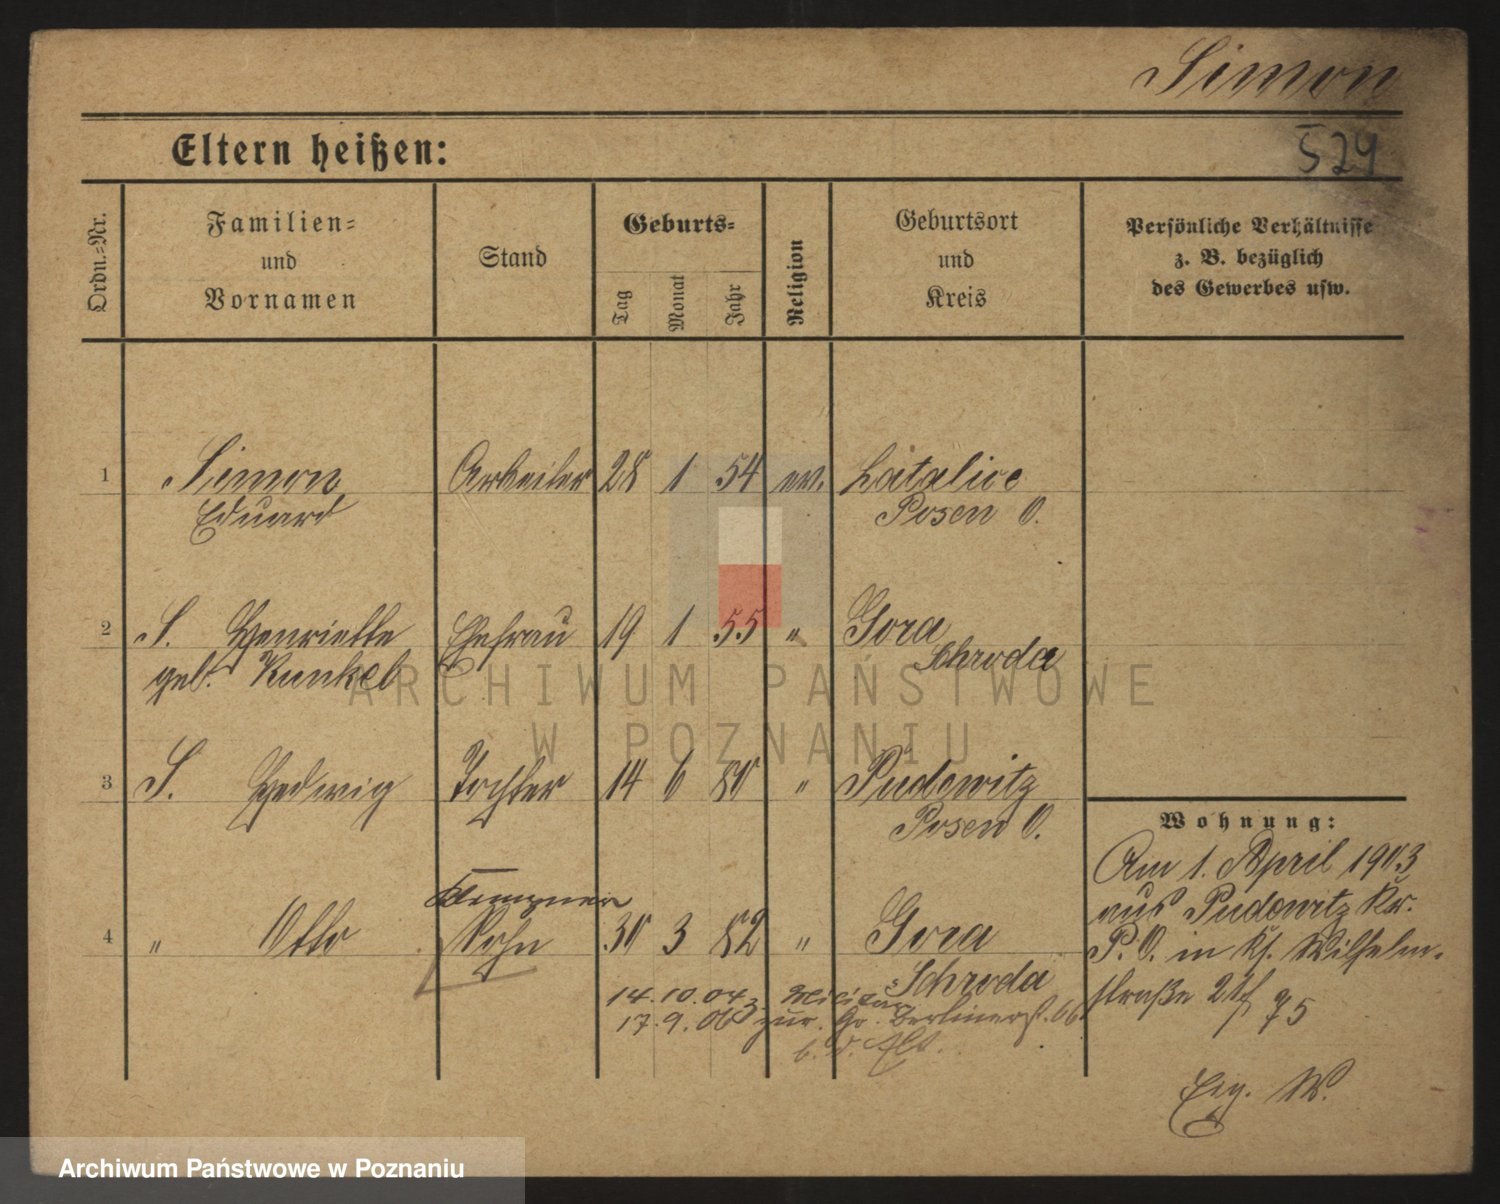 Simon
529
Eltern heißen:
Ordn.-Nr.
Familien-
und
Vornamen
Stand
Geburts-
Tag
Monat
Jahr
Religion
Geburtsort
und
Kreis
Persönliche Verhältnisse
z. B. bezüglich
des Gewerbes usw.
1 Simon Arbeiter 28 1 54 ev. Latalice
Eduard Posen O.
2 S. Henriette Ehefrau 19 1 55 " Gora
geb. Kunkel Schroda
3 S. Hedwig Tochter 14 6 80 " Pudewitz
Posen O.
Klempner
4 " Otto Sohn 30 3 82 " Gora
Schroda
14.10.04 z. Militär
17.9.06 zur. Gr. Berlinerst. 66
b. d. Elt.
Wohnung:
Am 1. April 1903
aus Pudewitz Kr.
P. O. in Kf. Wilhelm-
straße 21f 75
W.
ARCHIWUM PAŃSTWOWE
W POZNANIU
Archiwum Państwowe w Poznaniu